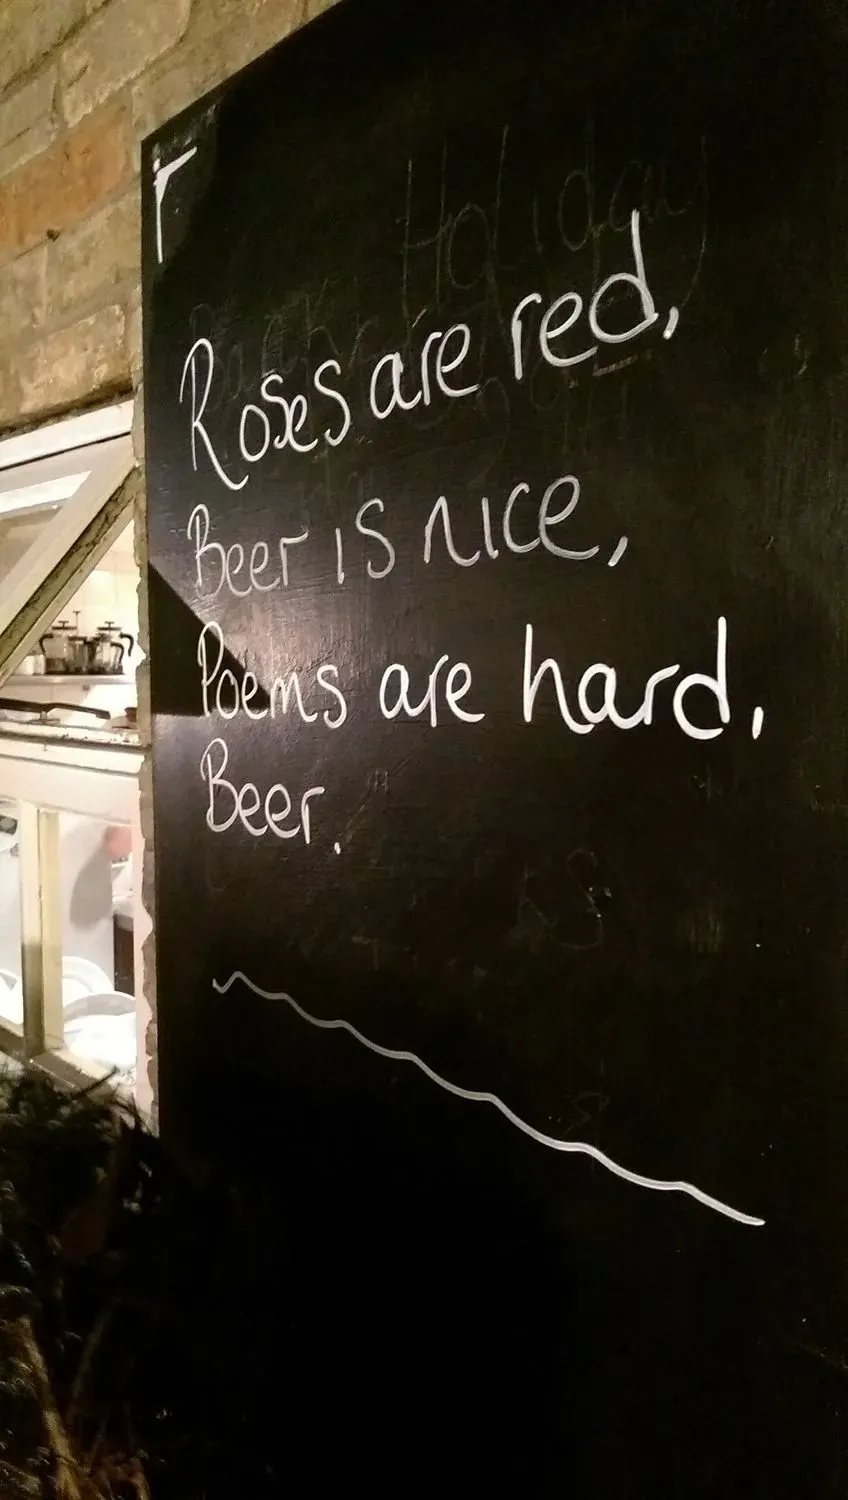 Holiday
Roses are red,
Beer is nice,
Poems are hard,
Beer.